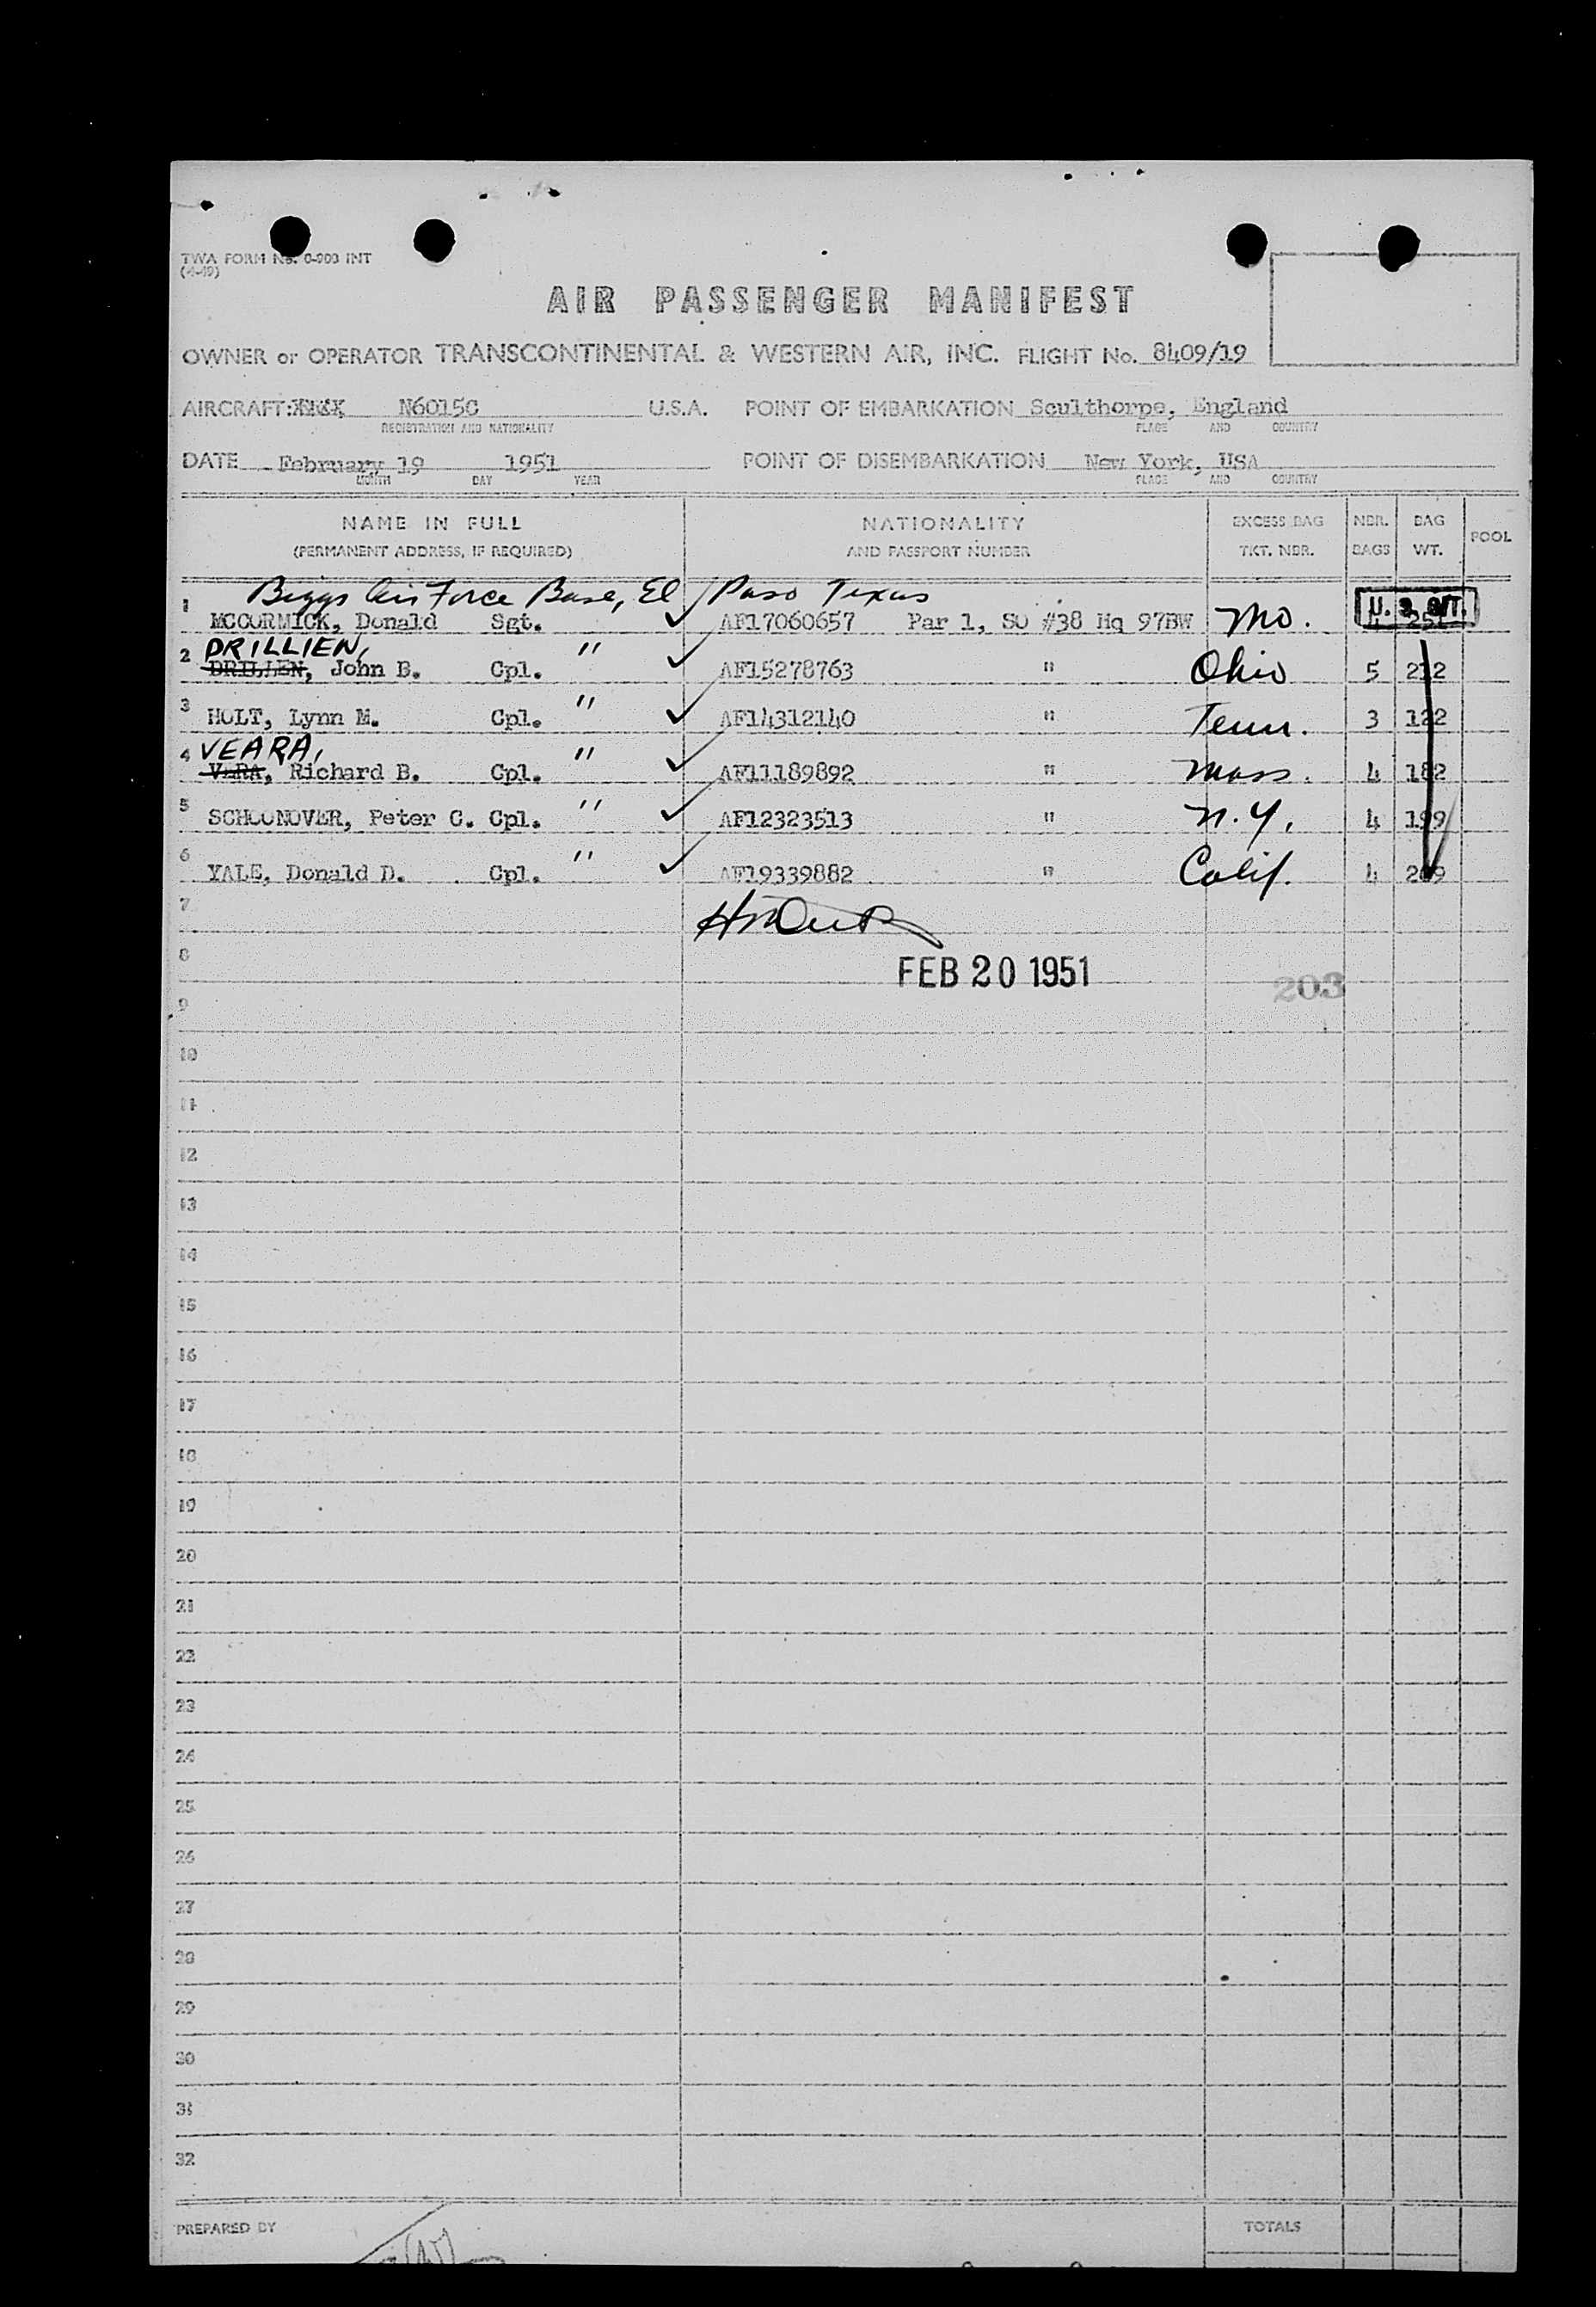 TWA FORM No. 0-900 INT
(4-49)
AIR PASSENGER MANIFEST
OWNER or OPERATOR TRANSCONTINENTAL & WESTERN AIR, INC. FLIGHT No. 8409/19
AIRCRAFT: N6015C U.S.A. POINT OF EMBARKATION Sculthorpe, England
REGISTRATION AND NATIONALITY PLACE AND COUNTRY
DATE February 19 1951 POINT OF DISEMBARKATION New York, USA
MONTH DAY YEAR PLACE AND COUNTRY
NAME IN FULL NATIONALITY EXCESS BAG NBR. BAG POOL
(PERMANENT ADDRESS, IF REQUIRED) AND PASSPORT NUMBER TKT. NBR. BAGS WT.
Biggs Air Force Base, El Paso Texas
1 MCCORMICK, Donald Sgt. AF17060657 Par 1, SO #38 Hq 97BW Mo. 4
DRILLIEN,
2 DRILIEN, John B. Cpl. " AF15278763 " Ohio 5 212
3 HOLT, Lynn M. Cpl. " AF14312140 " Tenn. 3 122
VEARA,
4 VERA, Richard B. Cpl. " AF11189892 " Mass. 4 182
5 SCHOONOVER, Peter C. Cpl. " AF12323513 " N.Y. 4 199
6 YALE, Donald D. Cpl. " AF19339882 " Calif. 4 209
7
8 FEB 20 1951
203
9
10
11
12
13
14
15
16
17
18
19
20
21
22
23
24
25
26
27
28
29
30
31
32
PREPARED BY TOTALS